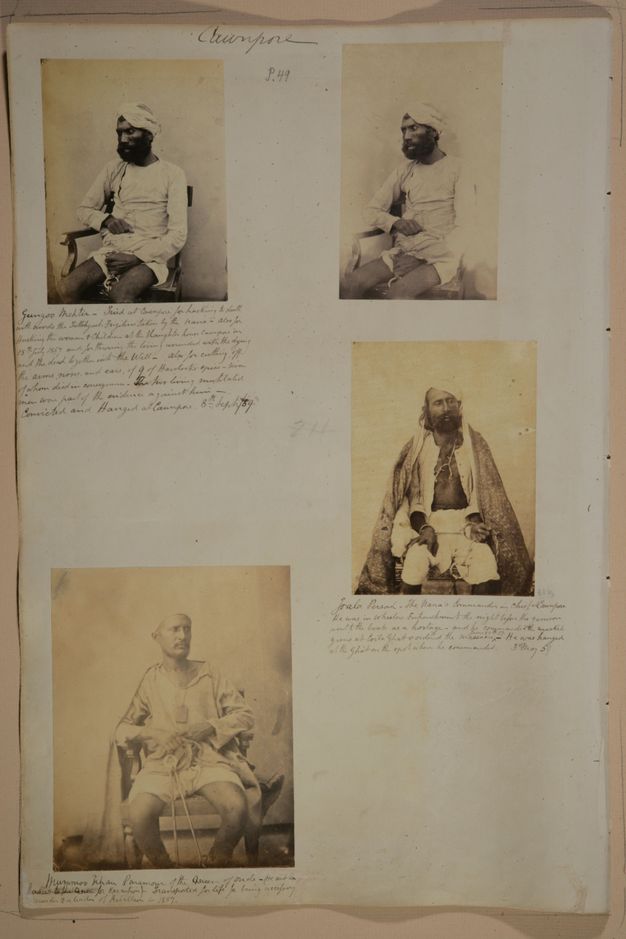 Cawnpore
P. 49
Gungoo Mehter - Tried at Cawnpore for hacking to death
with swords the Futtehgurh Fugitives taken by the Nana - also for
hacking the women & Children at the Slaughter house Cawnpore on
15th July 1857 and for throwing the living wounded with the dying
and the dead together into the Well - also for cutting off
the arms, nose, and ears, of 9 of Havelocks spies - seven
of whom died in consequence. The two living mutilated
men were part of the evidence against him -
Convicted and Hanged at Cawnpore 8th Septr /59
Joala Persad - The Nana's Commander in Chief - Cawnpore
He was in Wheelers Entrenchment the night before the garrison
went to the boats as a hostage - and he commanded the
guns at Ghat & ordered the massacre - He was hanged
at the Ghat on the spot where he commanded. 3d May
Mummoo Khan Paramour of the Queen of Oude - He
for Transported for life for being accessory
murder & a leader of Rebellion in 1857.